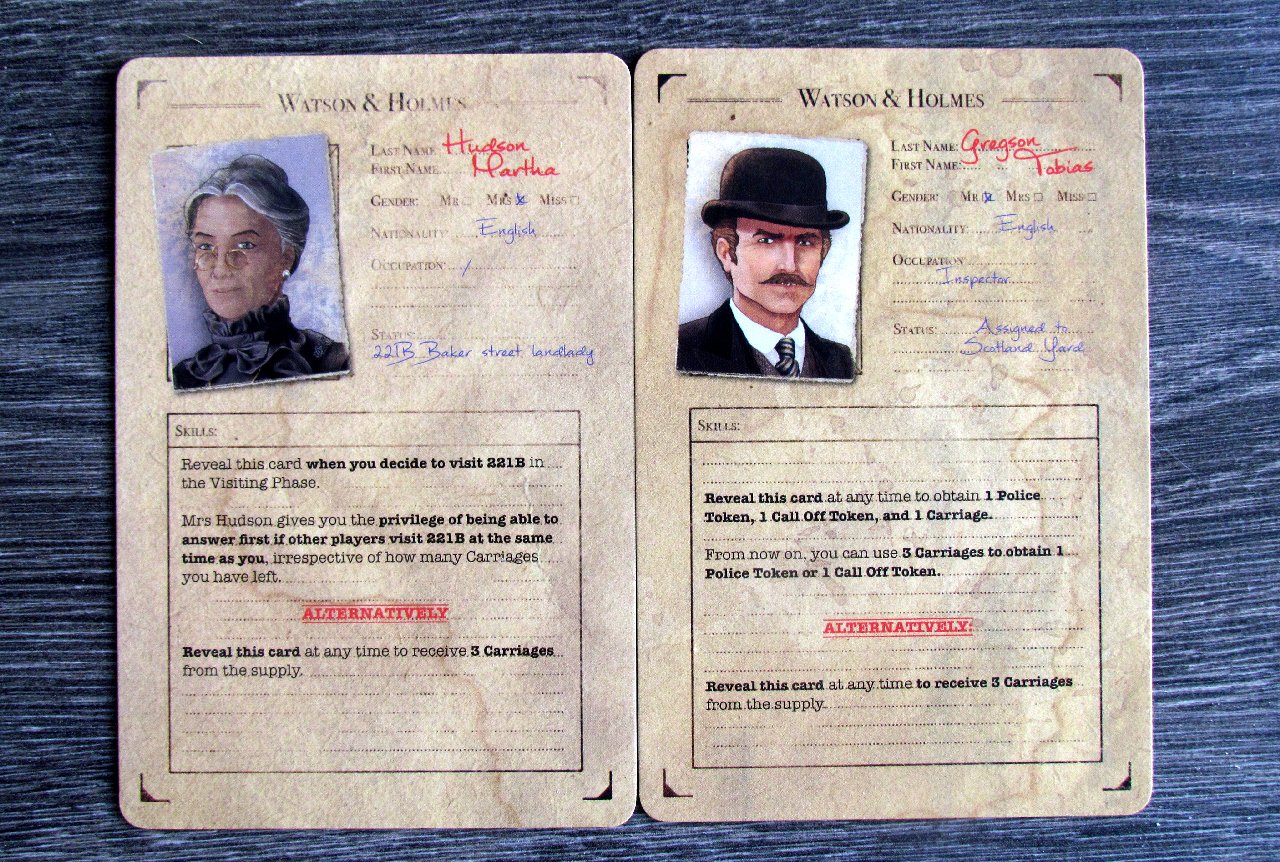 WATSON & HOLMES
LAST NAME: Hudson
FIRST NAME: Martha
GENDER: MR MRS MISS
NATIONALITY: English
OCCUPATION: /
STATUS:
221B Baker street landlady
SKILLS:
Reveal this card when you decide to visit 221B in
the Visiting Phase.
Mrs Hudson gives you the privilege of being able to
answer first if other players visit 221B at the same
time as you, irrespective of how many Carriages
you have left.
ALTERNATIVELY
Reveal this card at any time to receive 3 Carriages
from the supply.
WATSON & HOLMES
LAST NAME: Gregson
FIRST NAME: Tobias
GENDER: MR MRS MISS
NATIONALITY: English
OCCUPATION
Inspector
STATUS: Assigned to
Scotland Yard
SKILLS:
Reveal this card at any time to obtain 1 Police
Token, 1 Call Off Token, and 1 Carriage.
From now on, you can use 3 Carriages to obtain 1
Police Token or 1 Call Off Token.
ALTERNATIVELY:
Reveal this card at any time to receive 3 Carriages
from the supply.